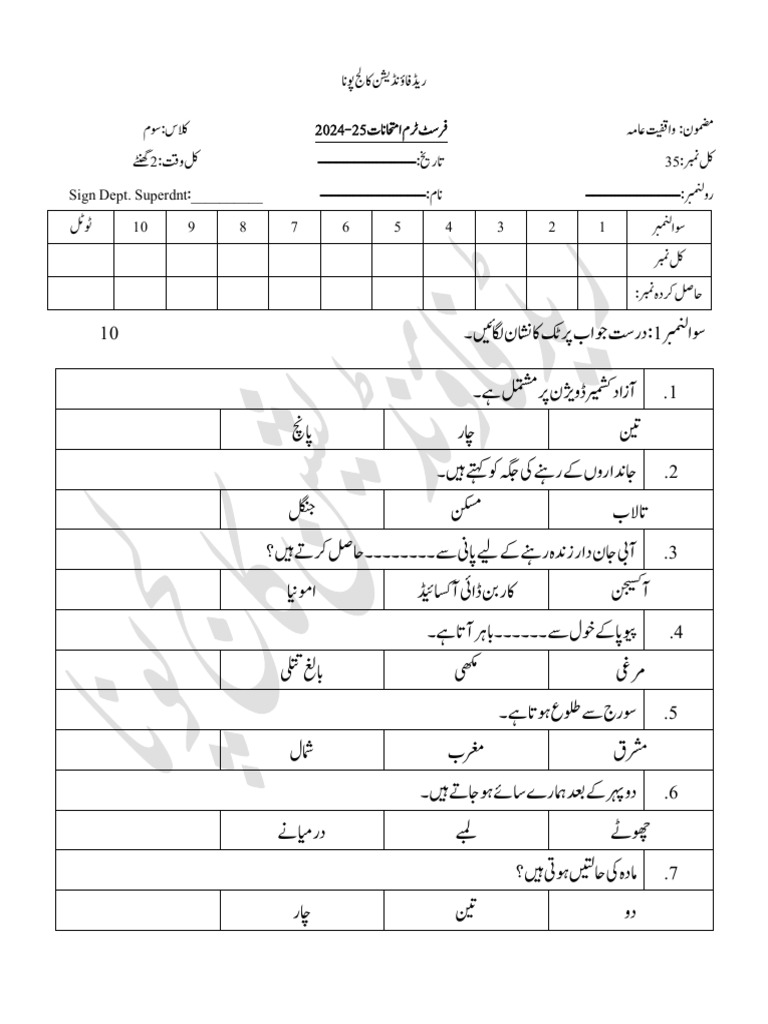 ریڈ فاؤنڈیشن کالج پونا
مضمون: واقفیت عامہ فرسٹ ٹرم امتحانات 25-2024 کلاس: سوم
کل نمبر: 35 تاریخ: کل وقت: 2 گھنٹے
رولنمبر: نام: Sign Dept. Superdnt:_________
سوالنمبر 1 2 3 4 5 6 7 8 9 10 ٹوٹل
کل نمبر
حاصل کردہ نمبر:
سوالنمبر 1: درست جواب پر ٹک کا نشان لگائیں۔ 10
1. آزاد کشمیر ڈویژن پر مشتمل ہے۔
تین چار پانچ
2. جانداروں کے رہنے کی جگہ کو کہتے ہیں۔
تالاب مسکن جنگل
3. آبی جان دار زندہ رہنے کے لیے پانی سے۔۔۔۔۔۔۔۔حاصل کرتے ہیں؟
آکسیجن کاربن ڈائی آکسائیڈ امونیا
4. پیوپا کے خول سے۔۔۔۔۔۔باہر آتا ہے۔
مرغی مکھی بالغ تتلی
5. سورج سے طلوع ہوتا ہے۔
مشرق مغرب شمال
6. دوپہر کے بعد ہمارے سائے ہو جاتے ہیں۔
چھوٹے لمبے درمیانے
7. مادہ کی حالتیں ہوتی ہیں؟
دو تین چار
ریڈ فاؤنڈیشن کالج پونا